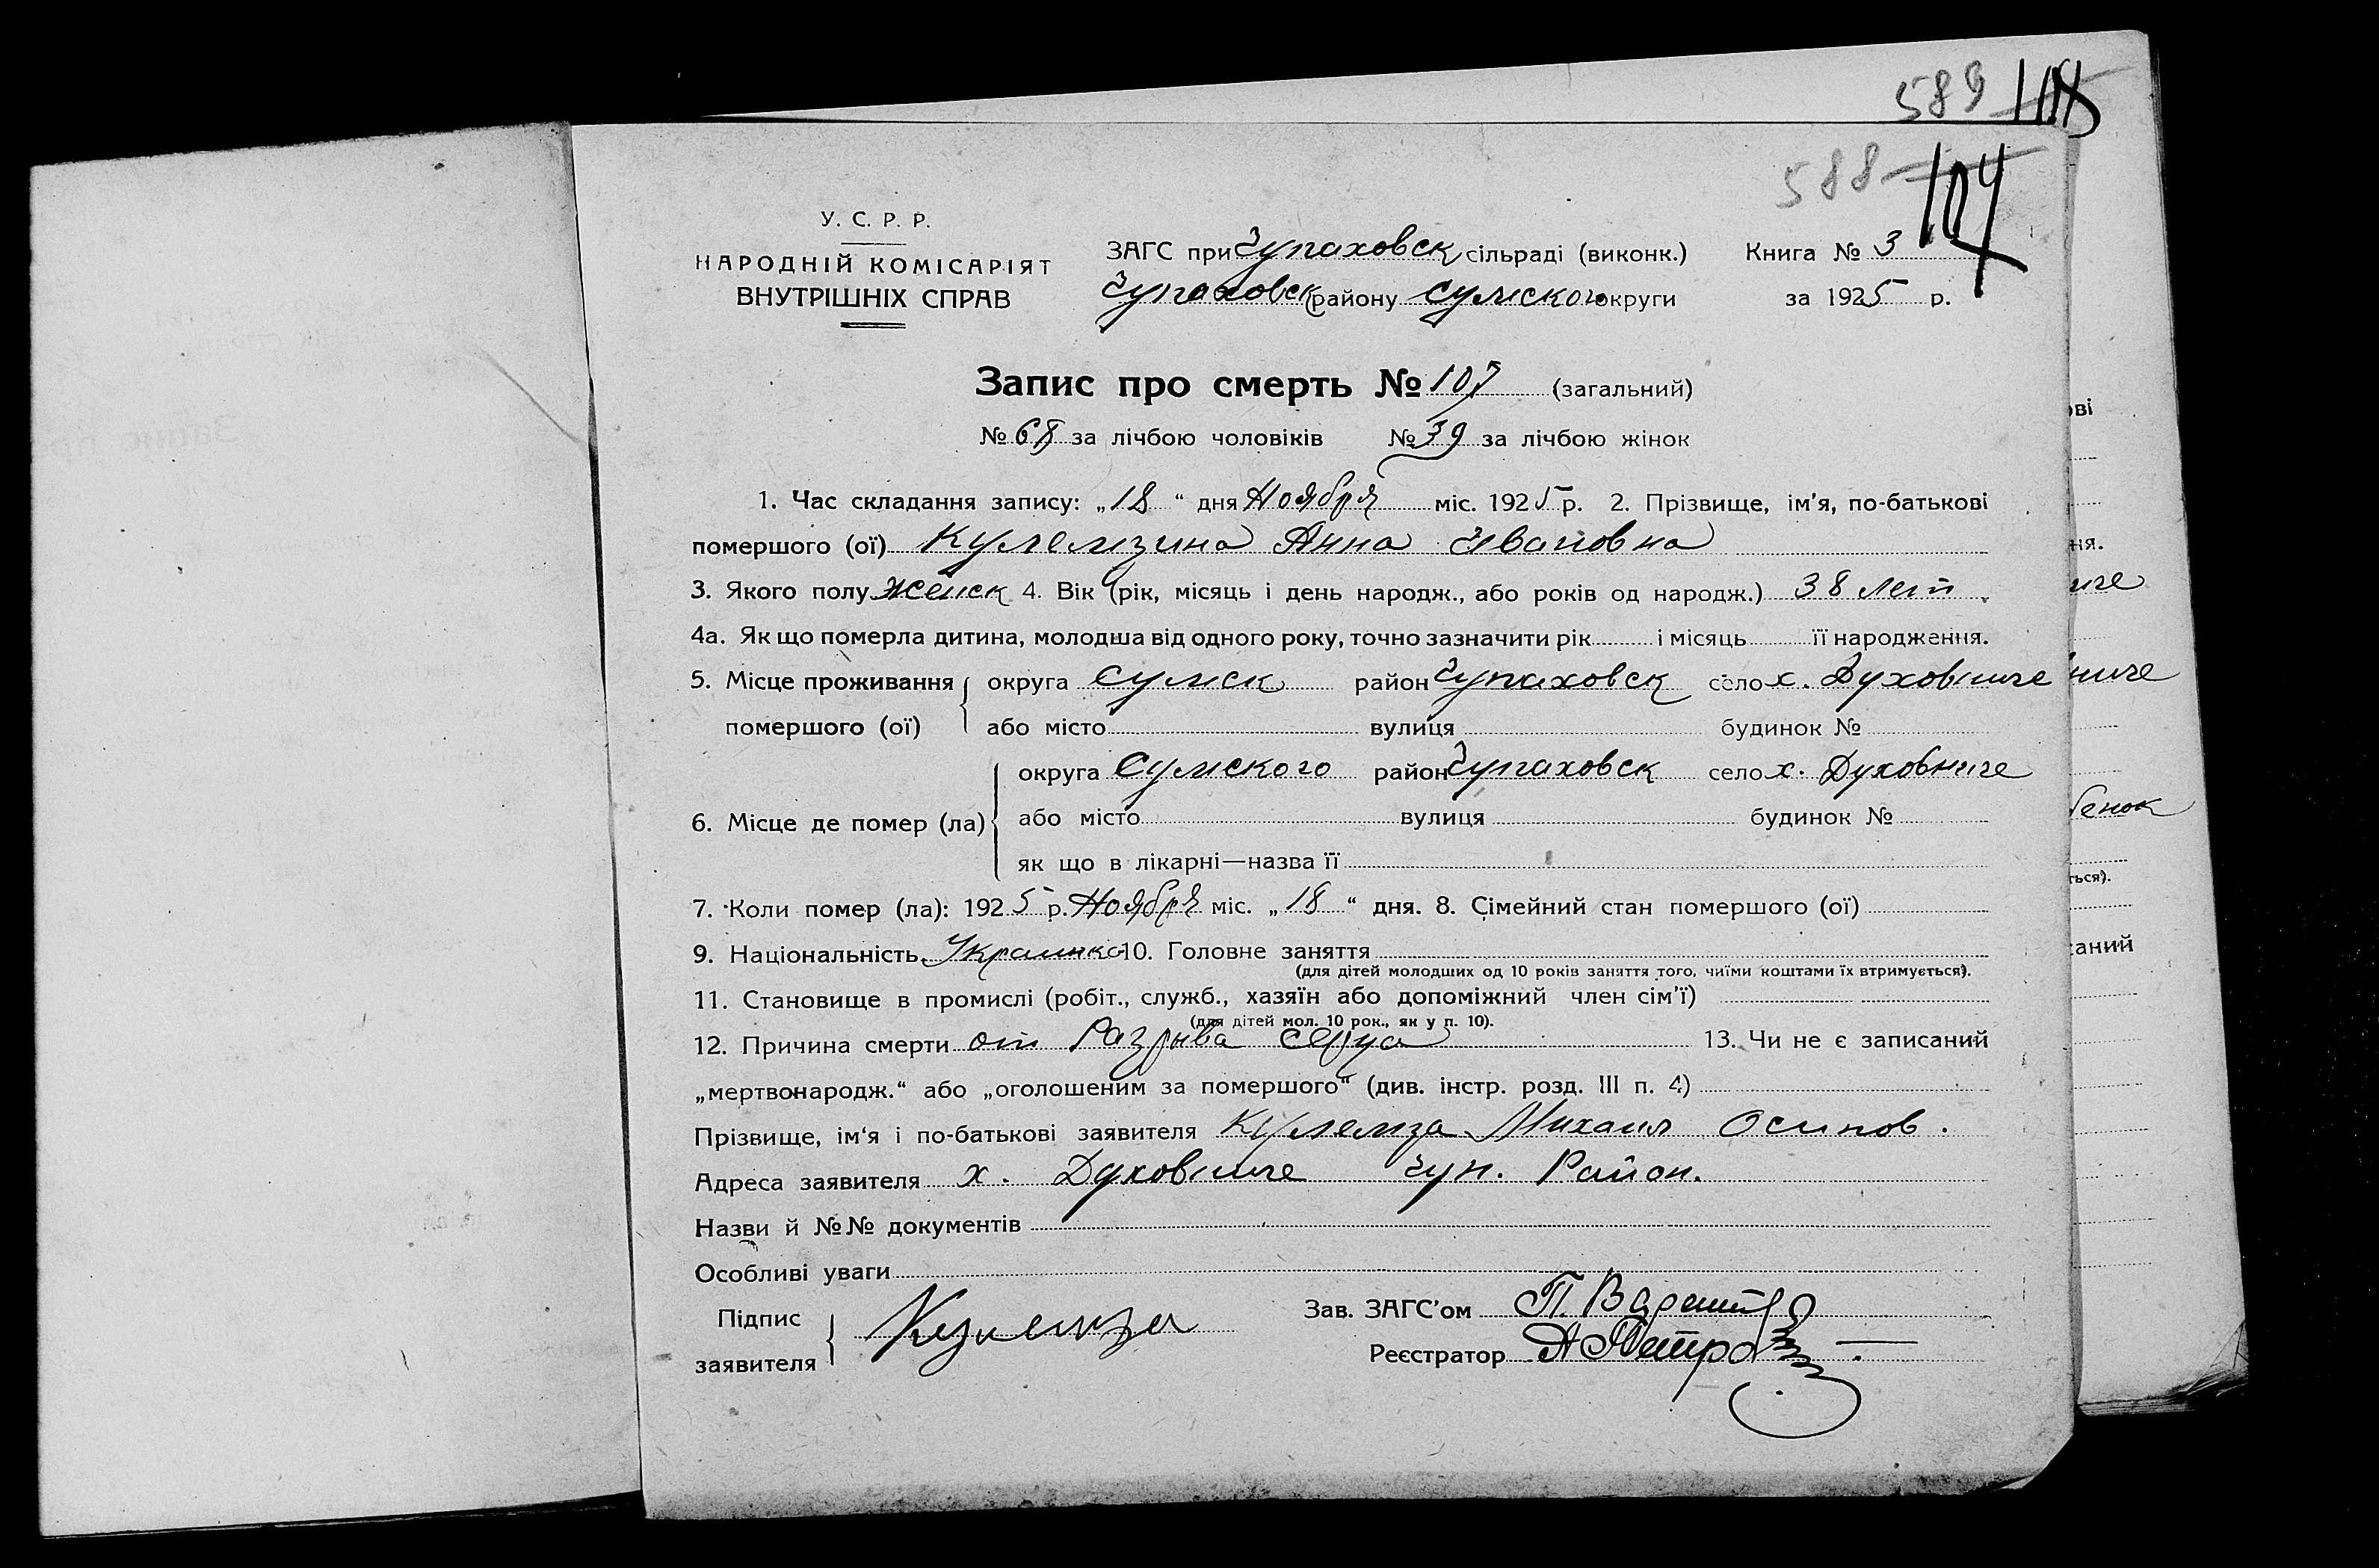 589 108
588 104
У. С. Р. Р.
НАРОДНІЙ КОМІСАРІЯТ
ВНУТРІШНІХ СПРАВ
ЗАГС при Чупаховск сільраді (виконк.) Книга № 3
Чупаховск району Сумского округи за 1925 р.
Запис про смерть № 107 (загальний)
№ 68 за лічбою чоловіків № 39 за лічбою жінок
1. Час складання запису: „18“ дня Ноября міс. 1925 р. 2. Прізвище, ім'я, по-батькові
помершого (ої) Кулемзина Анна Ивановна
3. Якого полу Женск 4. Вік (рік, місяць і день народж., або років од народж.) 38 лет
4а. Як що померла дитина, молодша від одного року, точно зазначити рік і місяць її народження.
5. Місце проживання помершого (ої) округа Сумск район Чупаховск село х. Духовниче
або місто вулиця будинок №
6. Місце де помер (ла) округа Сумского район Чупаховск село х. Духовниче
або місто вулиця будинок №
як що в лікарні—назва її
7. Коли помер (ла): 1925 р. Ноября міс. „18“ дня. 8. Сімейний стан помершого (ої)
9. Національність Украинка 10. Головне заняття
(для дітей молодших од 10 років заняття того, чиїми коштами їх втримується).
11. Становище в промислі (робіт., служб., хазяїн або допоміжний член сім'ї)
(для дітей мол. 10 рок., як у п. 10).
12. Причина смерти от Разрыва серца 13. Чи не є записаний
„мертвонародж.“ або „оголошеним за помершого“ (див. інстр. розд. III п. 4)
Прізвище, ім'я і по-батькові заявителя Кулемза Михаил Осипов.
Адреса заявителя х. Духовниче Чуп. Район.
Назви й №№ документів
Особливі уваги
Підпис заявителя Кулемза
Зав. ЗАГС'ом П.
Реєстратор А Петро
ові
ня.
иче
ниче
бенок
ться).
саний